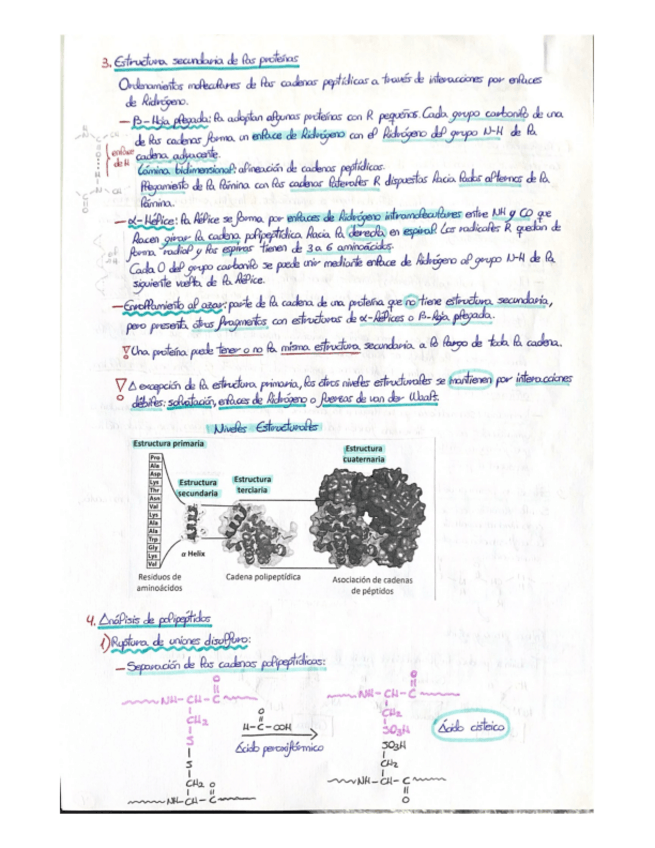 3. Estructura secundaria de las proteínas
Ordenamientos moleculares de las cadenas peptídicas a través de interacciones por enlaces
de hidrógeno.
– β-Hoja plegada: la adoptan algunas proteínas con R pequeños. Cada grupo carbonilo de una
de las cadenas forma un enlace de hidrógeno con el hidrógeno del grupo N-H de la
cadena adyacente.
enlace
de H
Lámina bidimensional: alineación de cadenas peptídicas.
Plegamiento de la lámina con las cadenas laterales R dispuestas hacia lados alternos de la
lámina.
– α-Hélice: la hélice se forma por enlaces de hidrógeno intramoleculares entre NH y CO que
hacen girar la cadena polipeptídica hacia la derecha, en espiral. Los radicales R quedan de
forma radial y las espiras tienen de 3 a 6 aminoácidos.
Cada O del grupo carbonilo se puede unir mediante enlace de hidrógeno al grupo N-H de la
siguiente vuelta de la hélice.
– Enrollamiento al azar: parte de la cadena de una proteína que no tiene estructura secundaria,
pero presenta otros fragmentos con estructuras de α-hélices o β-hoja plegada.
Una proteína puede tener o no la misma estructura secundaria a lo largo de toda la cadena.
A excepción de la estructura primaria, los otros niveles estructurales se mantienen por interacciones
débiles: solvatación, enlaces de hidrógeno o fuerzas de van der Waals.
Niveles Estructurales
Estructura primaria
Estructura
secundaria
Estructura
terciaria
Estructura
cuaternaria
Pro
Ala
Asp
Lys
Thr
Asn
Val
Lys
Ala
Ala
Trp
Gly
Lys
Val
α Helix
Residuos de
aminoácidos
Cadena polipeptídica
Asociación de cadenas
de péptidos
4. Análisis de polipéptidos
1) Ruptura de uniones disulfuro:
– Separación de las cadenas polipeptídicas:
O
NH-CH-C
CH2
S
S
CH2 O
NH-CH-C
O
H-C-OOH
Ácido peroxifórmico
O
NH-CH-C
CH2
SO3H
SO3H
CH2
NH-CH-C
O
Ácido cisteico